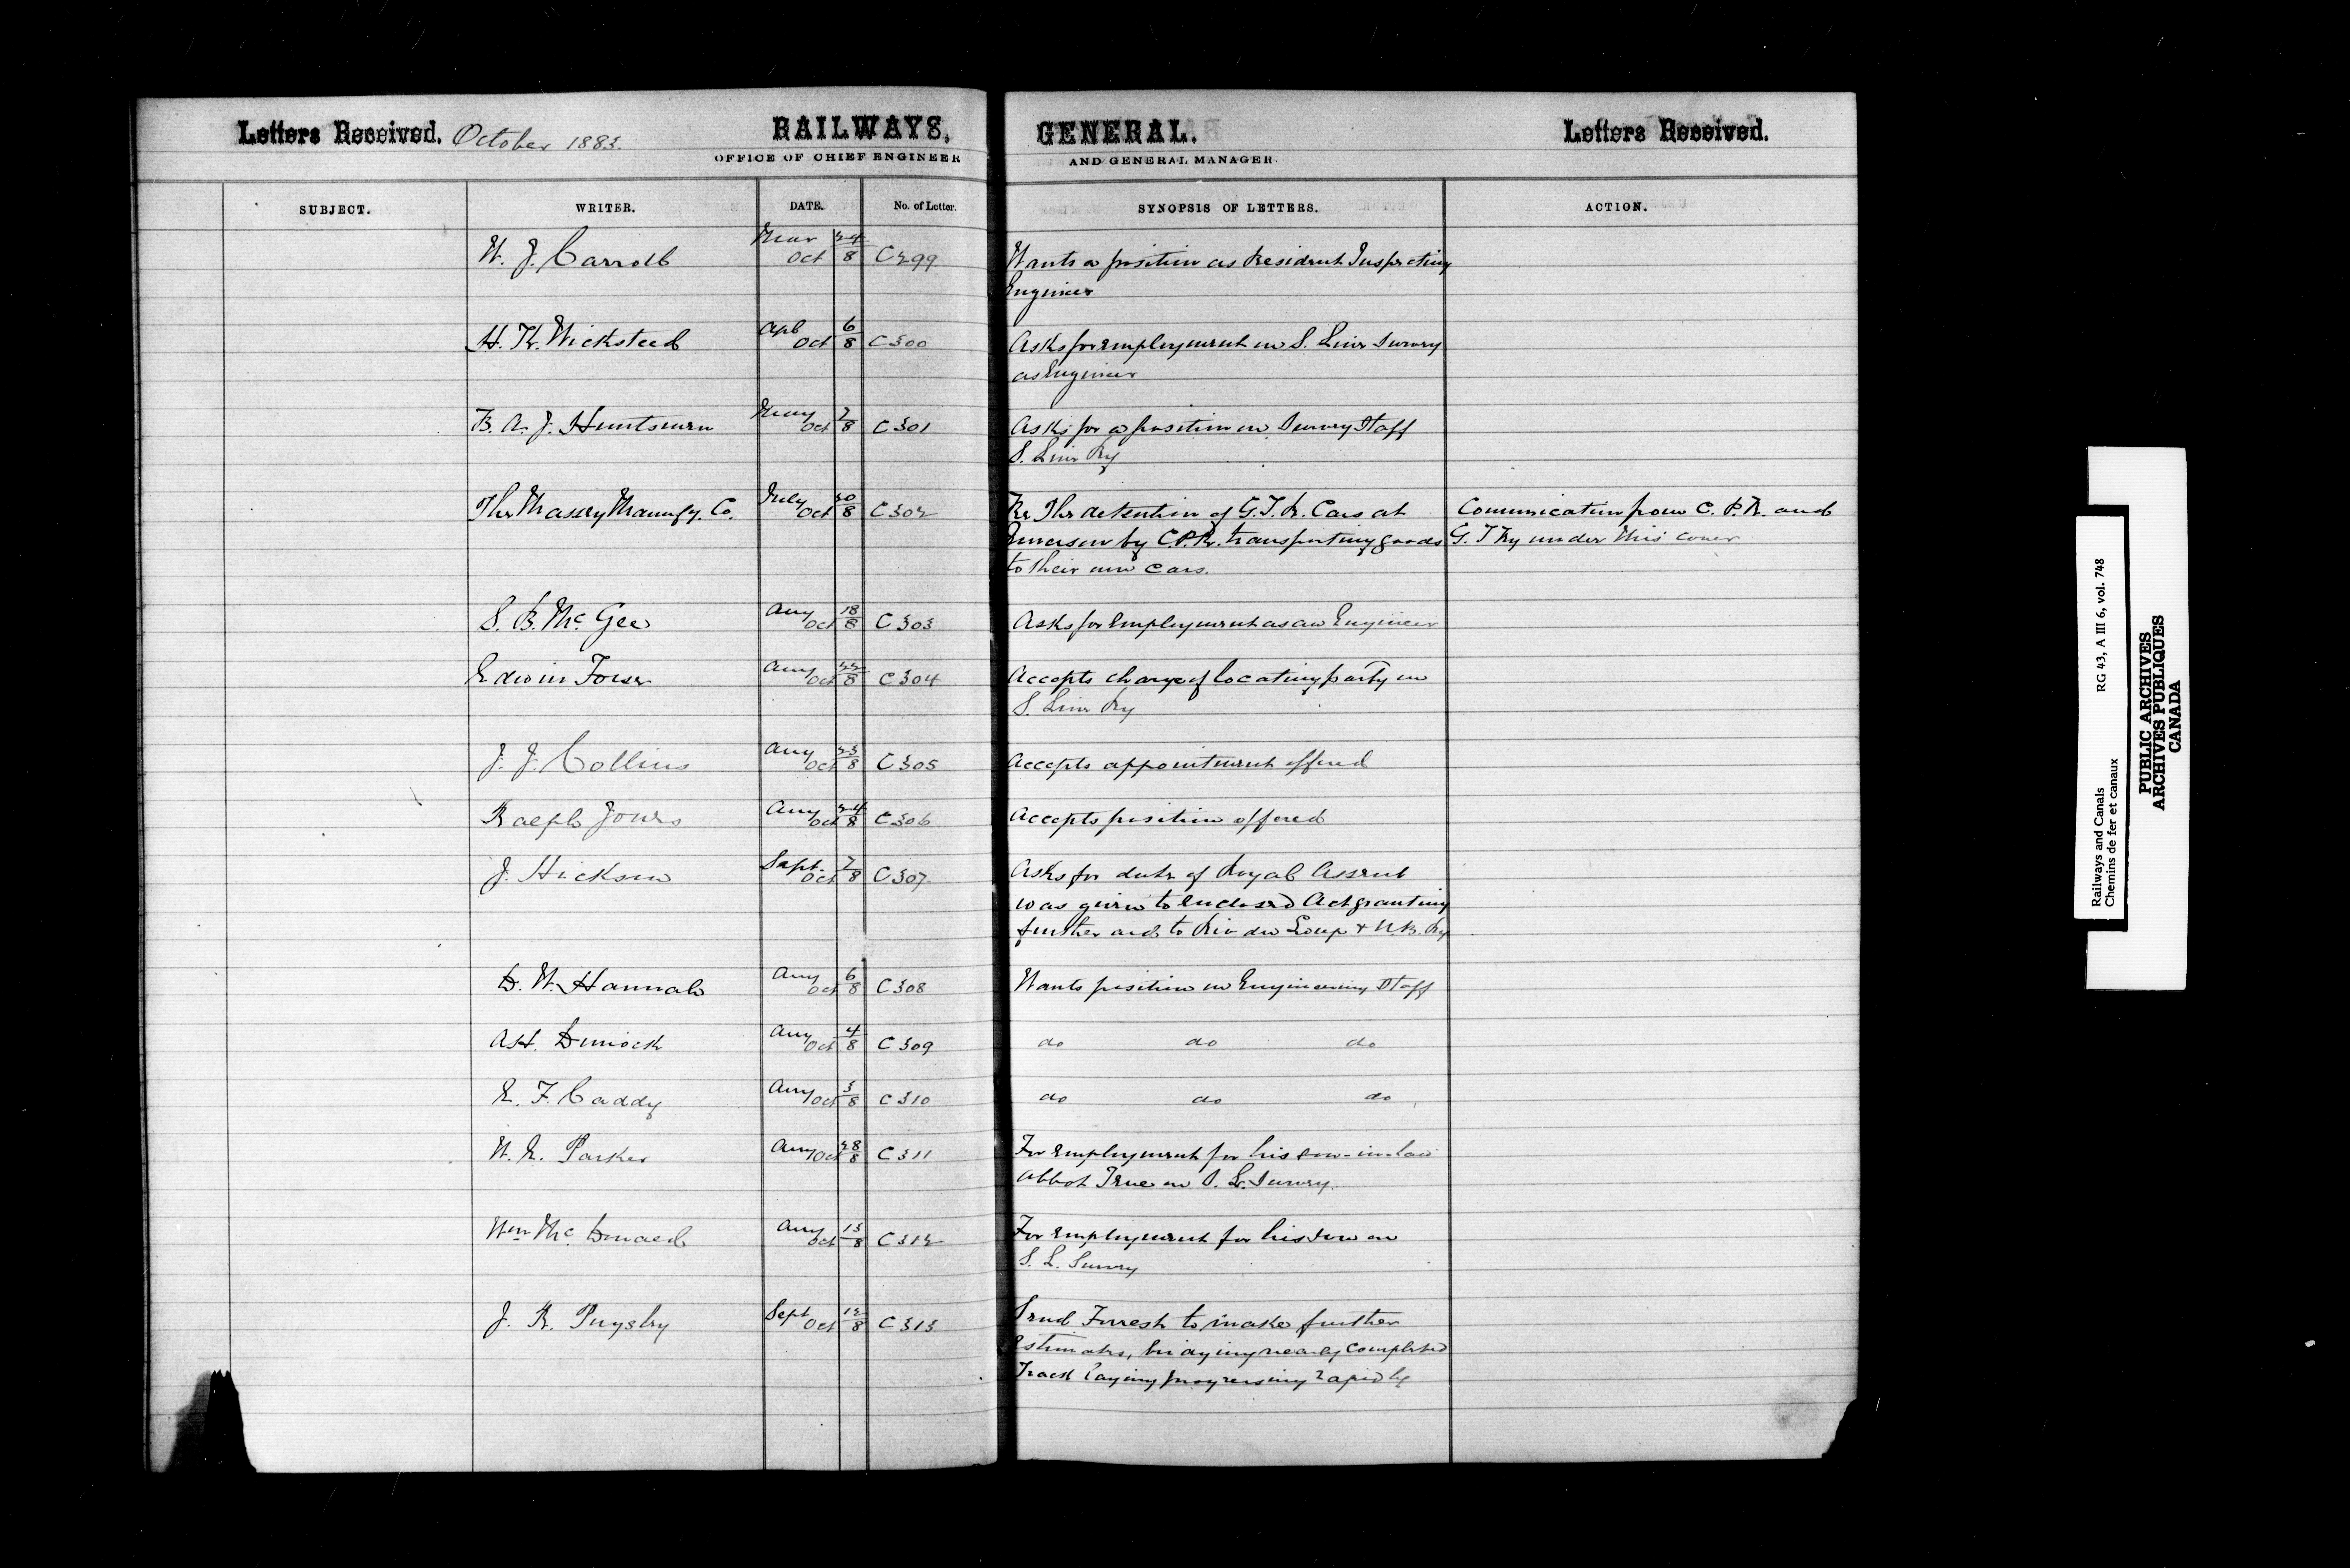 Letters Received. October 1883. RAILWAYS, GENERAL. Letters Received.
OFFICE OF CHIEF ENGINEER AND GENERAL MANAGER.
SUBJECT. WRITER. DATE. No. of Letter. SYNOPSIS OF LETTERS. ACTION.
W. J. Carroll Mar 24 Oct 8 C299 Wants a position as Resident Inspecting
Engineer
H. K. Wicksteed Apl 6 Oct 8 C300 Asks for employment on S. Line Survey
as Engineer
B. A. J. Huntsman May 7 Oct 8 C301 Asks for a position on Survey Staff
S. Line Ry
The Massey Manufy. Co. July 30 Oct 8 C302 Re The detention of G.T.R. Cars at Communication from C. P. R. and
Emerson by C.P.R. transporting goods G. T Ry under this cover
to their own cars.
S. B. Mc. Gee Aug 18 Oct 8 C303 Asks for Employment as an Engineer
Edwin Tower Aug 22 Oct 8 C304 Accepts charge of locating party on
S. Line Ry
J. J. Collins Aug 23 Oct 8 C305 Accepts appointment offered
Ralph Jones Aug 24 Oct 8 C306 Accepts position offered
J. Hickson Sept. 7 Oct 8 C307 Asks for date of Royal Assent
was given to enclosed Act granting
further aid to Riv du Loup & N.B. Ry
D. W. Hannah Aug 6 Oct 8 C308 Wants position on Engineering Staff
A.H. Dimock Aug 4 Oct 8 C309 do do do
E. F. Caddy Aug 3 Oct 8 C310 do do do
W. E. Parker Aug 28 Oct 8 C311 For employment for his son-in-law
Abbot True on S. L. Survey.
Wm Mc. Donald Aug 13 Oct 8 C312 For employment for his son on
S. L. Survey
J. R. Pugsley Sept 12 Oct 8 C313 Send Forrest to make further
estimates, bridging nearly completed
Track laying progressing rapidly
Railways and Canals RG 43, A III 6, vol. 748
Chemins de fer et canaux
PUBLIC ARCHIVES
ARCHIVES PUBLIQUES
CANADA